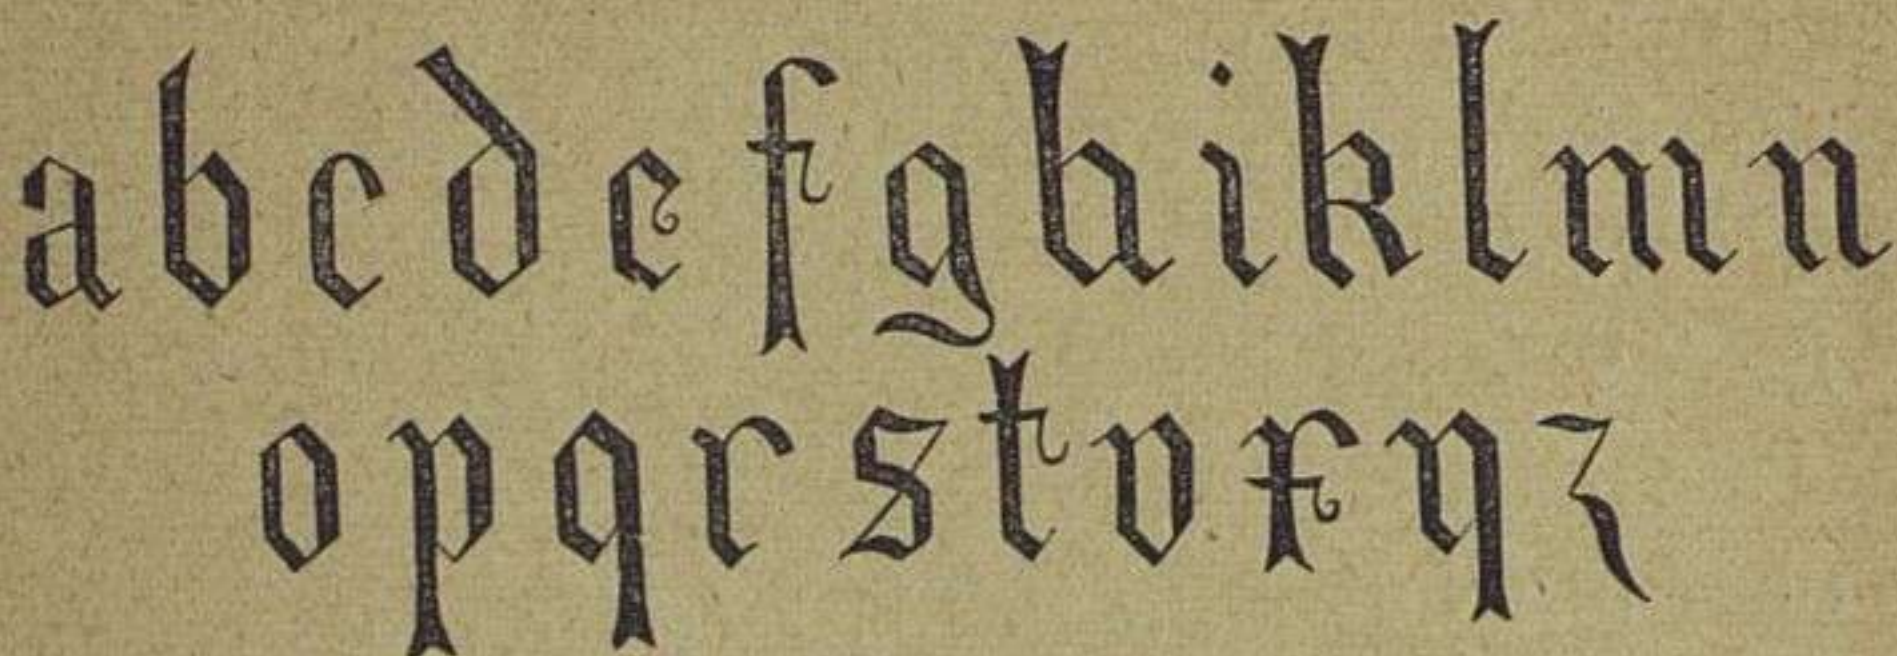 abcdefghiklmn
opqrstvxyz